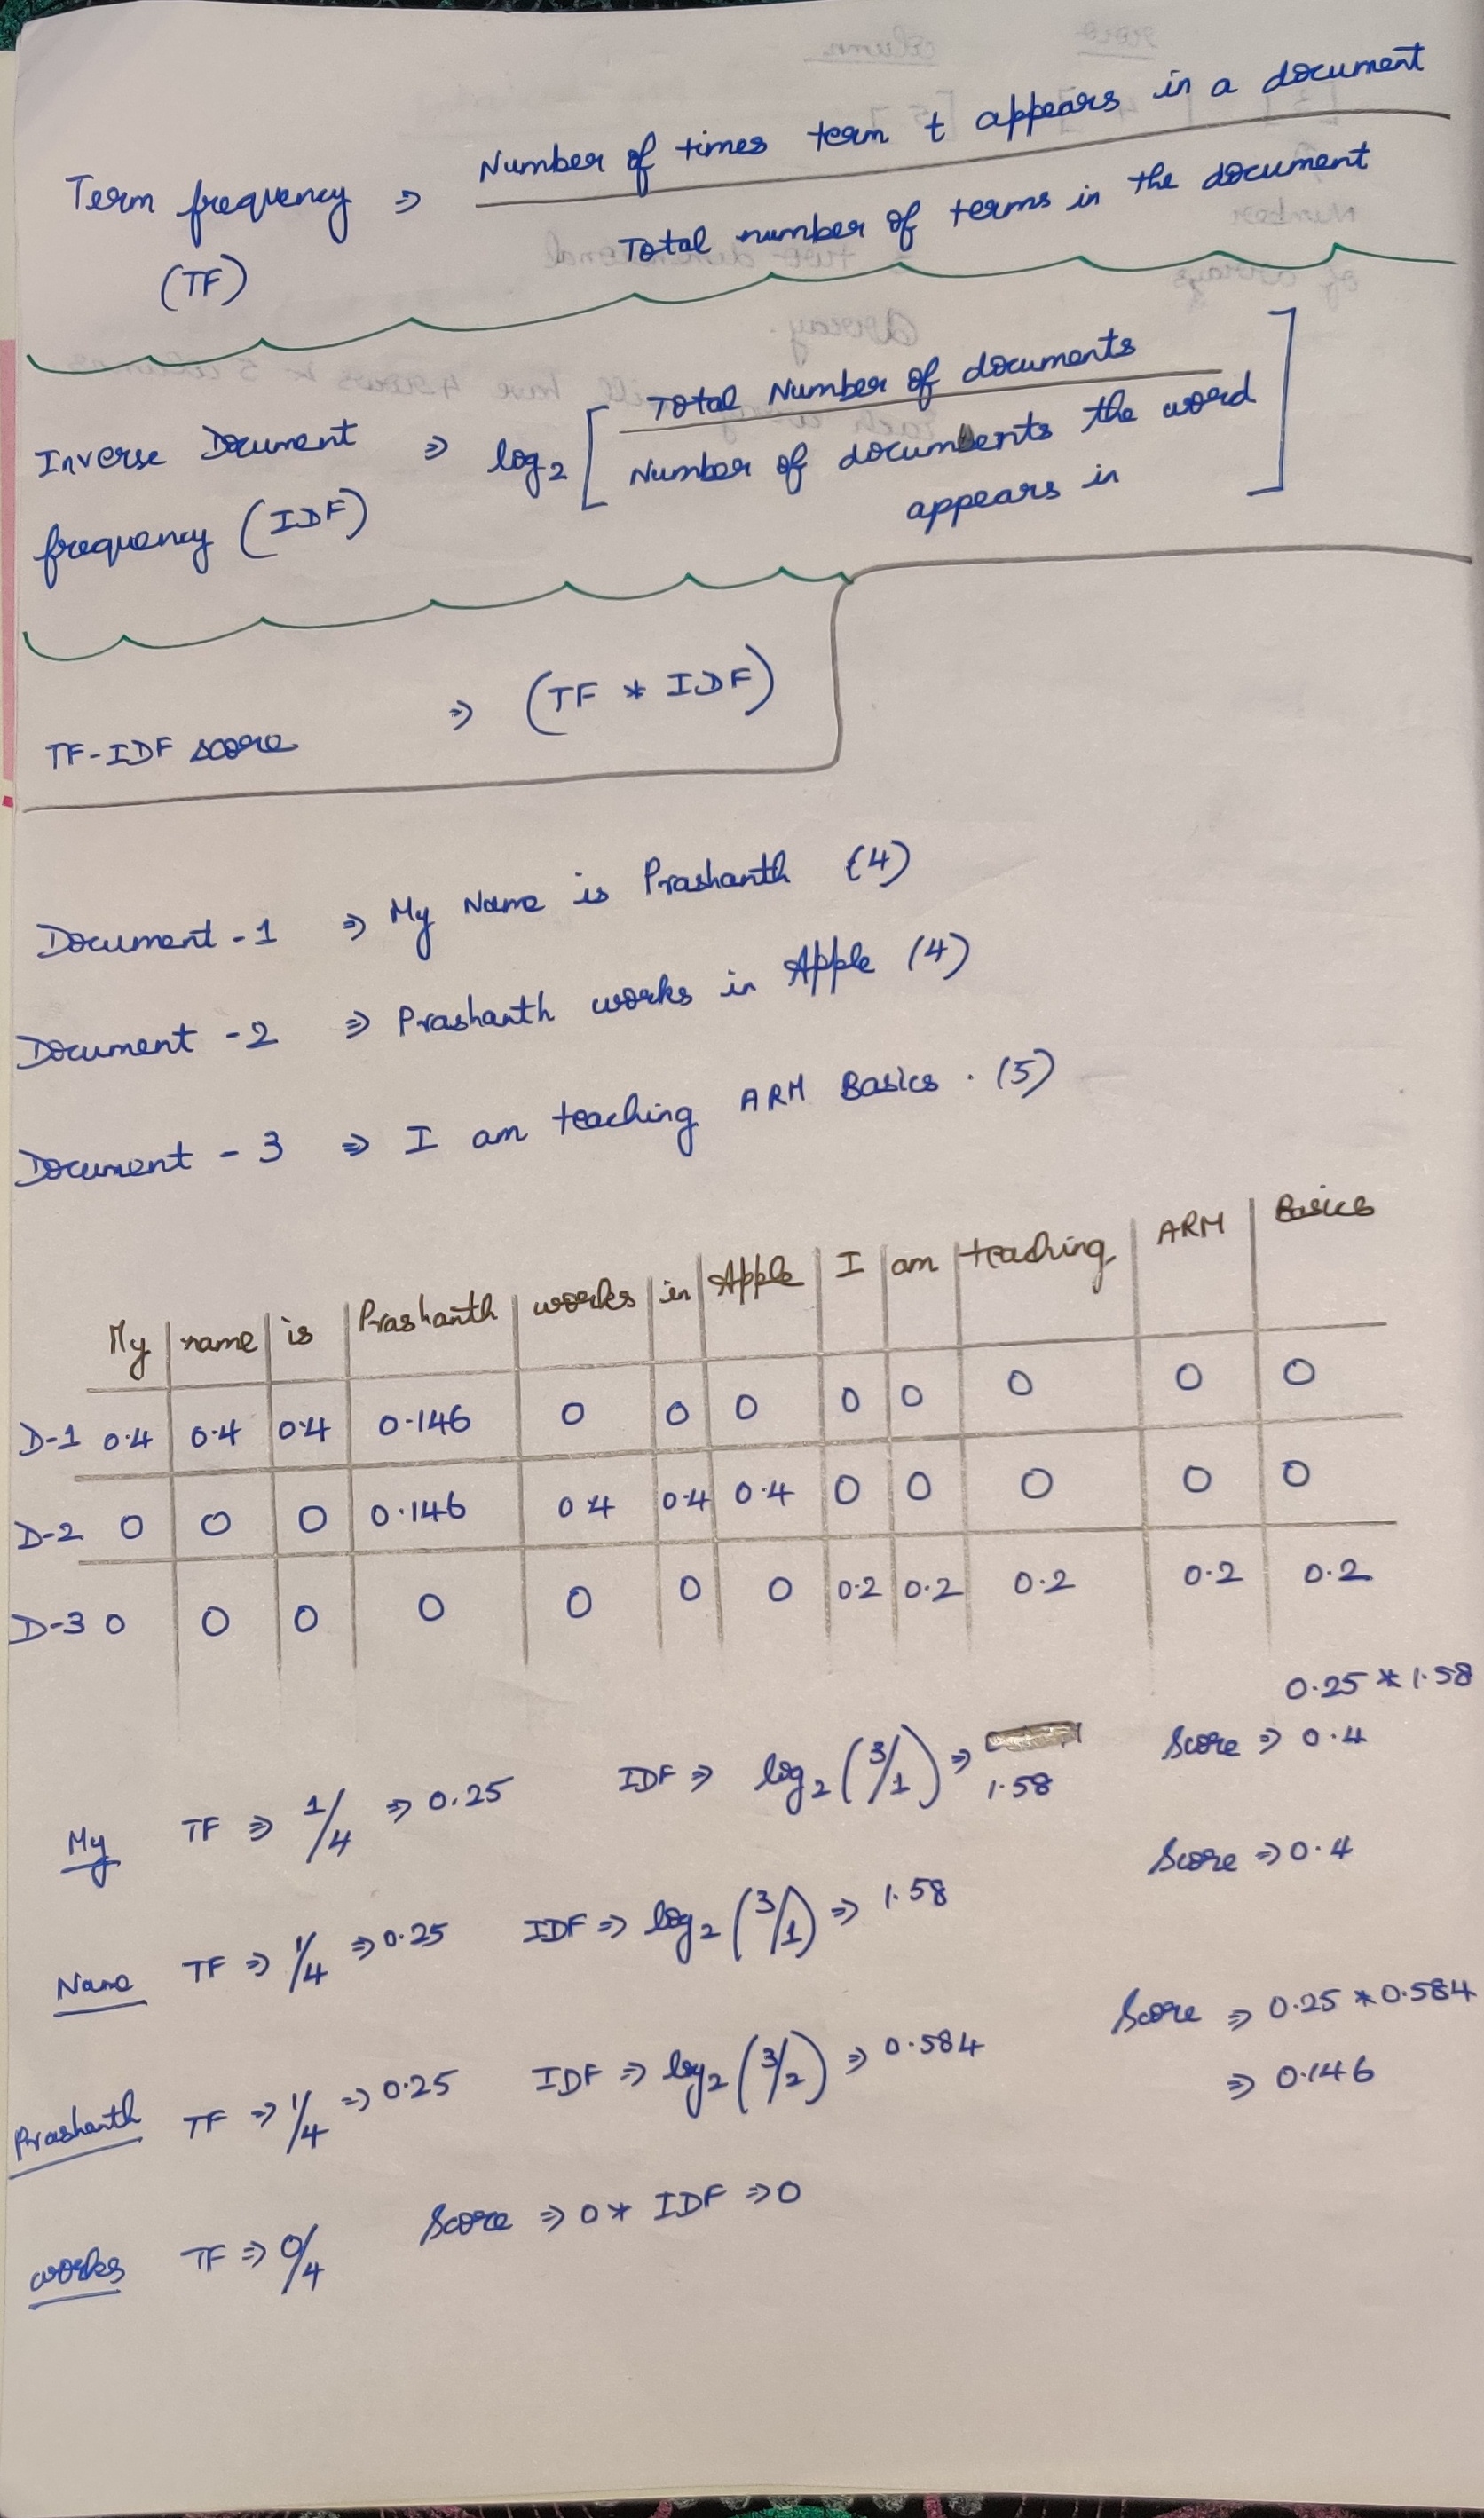 Number of times term t appears in a document
Term frequency ⇒
Total number of terms in the document
(TF)
Total Number of documents
Inverse Document ⇒ log₂ [ Number of documents the word ]
frequency (IDF) appears in
TF-IDF score ⇒ (TF * IDF)
Document - 1 ⇒ My Name is Prashanth (4)
Document - 2 ⇒ Prashanth works in Apple (4)
Document - 3 ⇒ I am teaching ARM Basics. (5)
My | name | is | Prashanth | works | in | Apple | I | am | teaching | ARM | Basics
D-1 0.4 | 0.4 | 0.4 | 0.146 | 0 | 0 | 0 | 0 | 0 | 0 | 0 | 0
D-2 0 | 0 | 0 | 0.146 | 0.4 | 0.4 | 0.4 | 0 | 0 | 0 | 0 | 0
D-3 0 | 0 | 0 | 0 | 0 | 0 | 0 | 0.2 | 0.2 | 0.2 | 0.2 | 0.2
0.25 * 1.58
My TF ⇒ 1/4 ⇒ 0.25 IDF ⇒ log₂ (3/1) ⇒ 1.58 Score ⇒ 0.4
Name TF ⇒ 1/4 ⇒ 0.25 IDF ⇒ log₂ (3/1) ⇒ 1.58 Score ⇒ 0.4
Prashanth TF ⇒ 1/4 ⇒ 0.25 IDF ⇒ log₂ (3/2) ⇒ 0.584 Score ⇒ 0.25 * 0.584
⇒ 0.146
works TF ⇒ 0/4 Score ⇒ 0 * IDF ⇒ 0